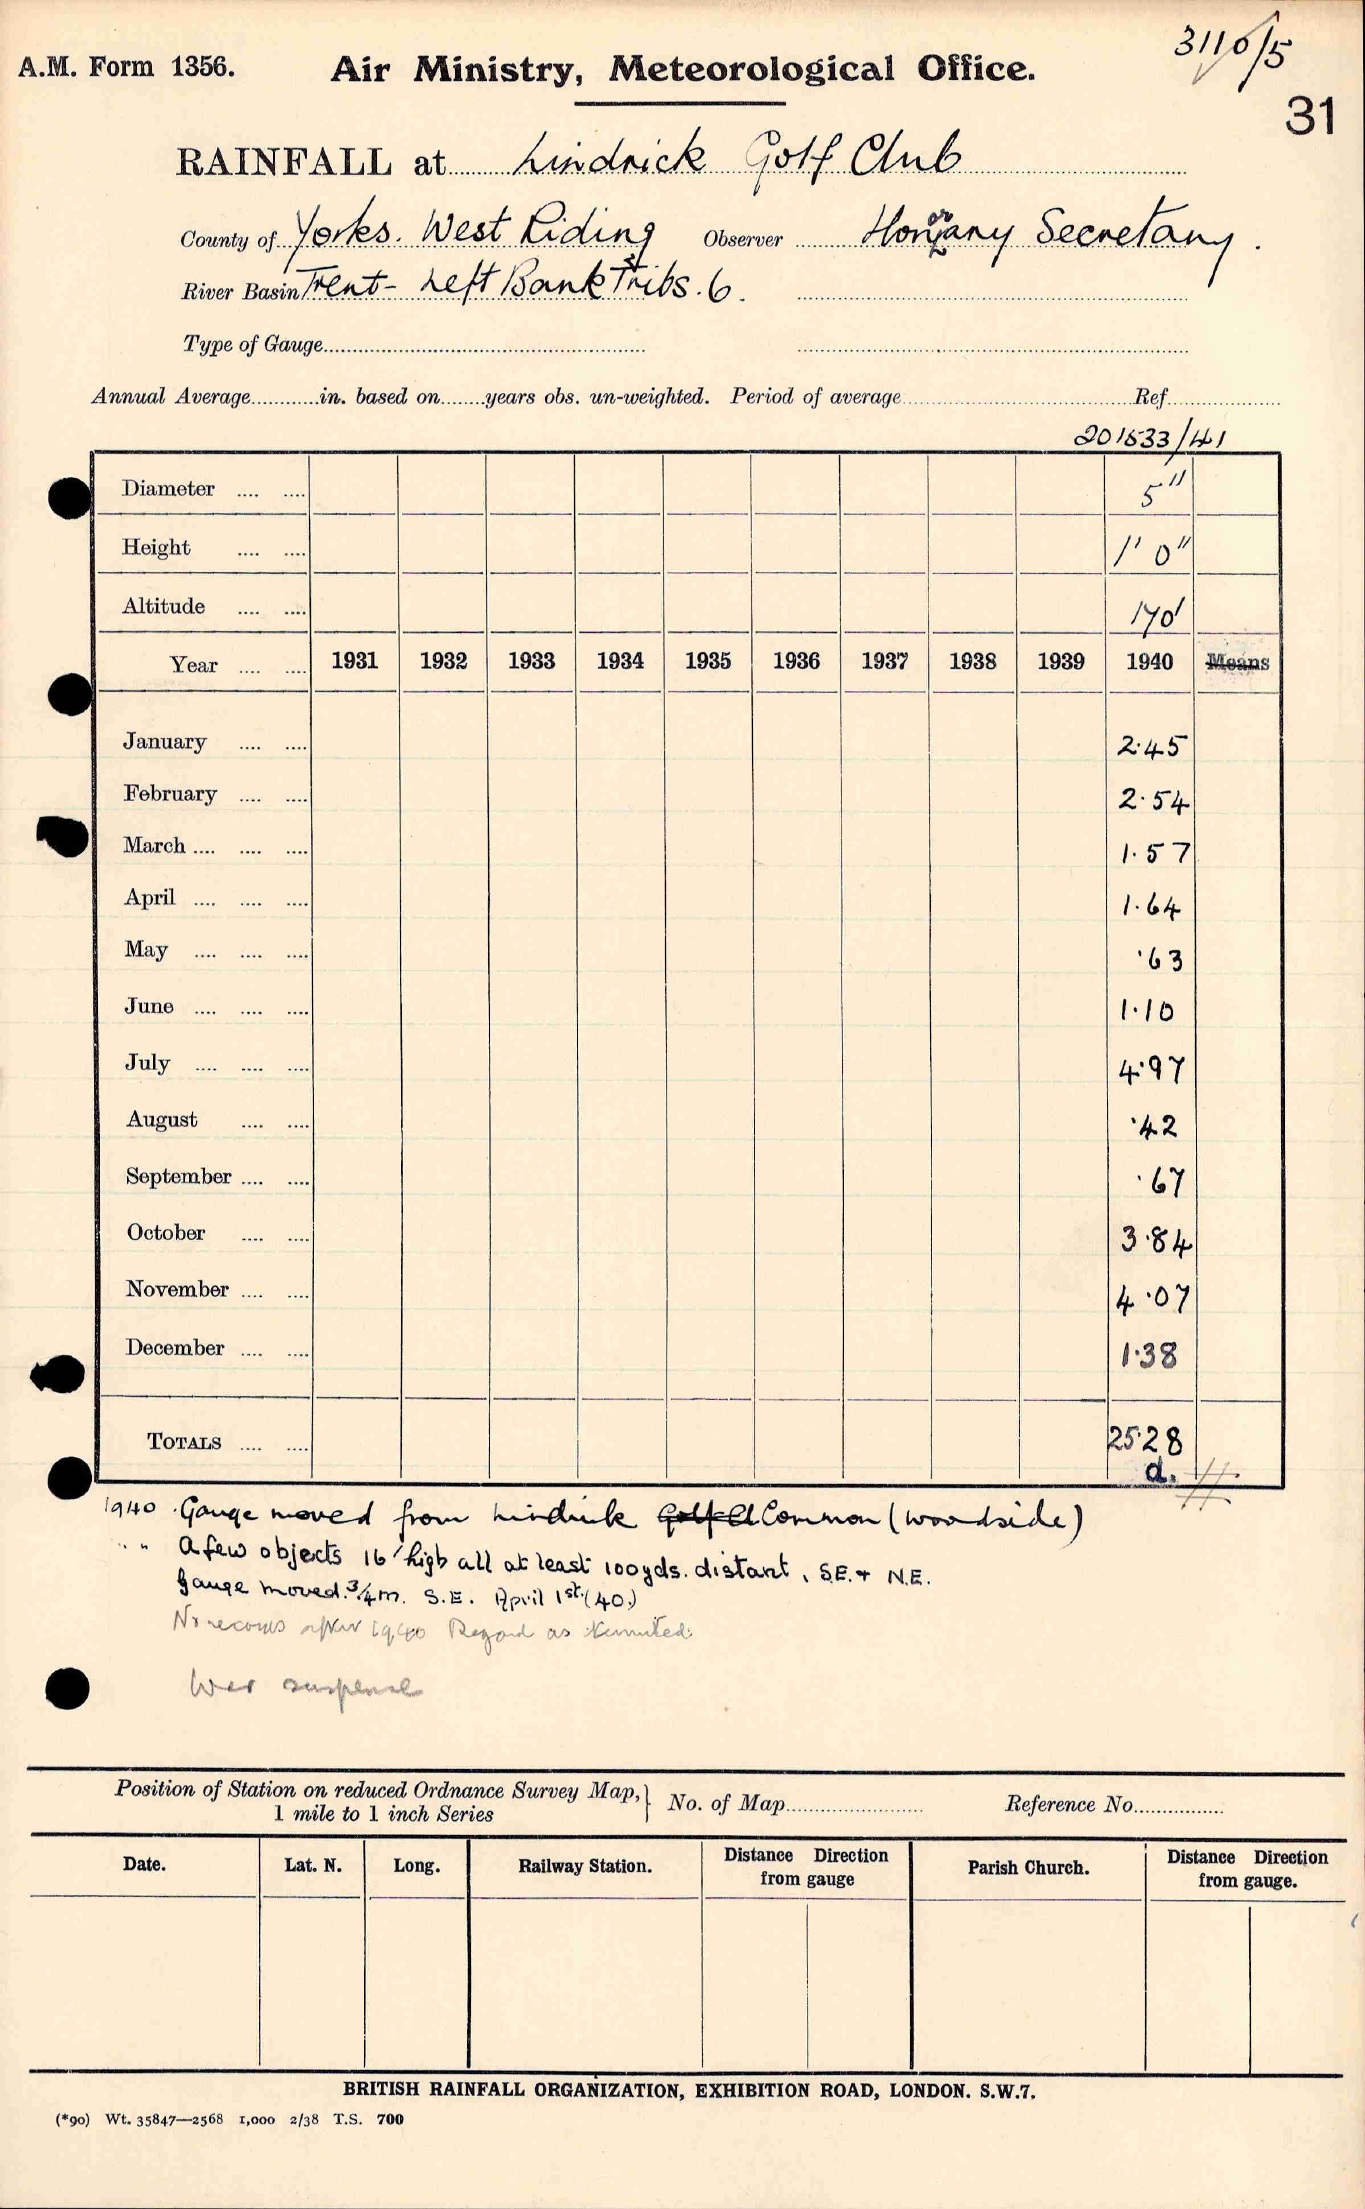 3110/5
A.M. Form 1356. Air Ministry, Meteorological Office.
31
RAINFALL at Lindrick Golf Club
County of Yorks. West Riding Observer Honorary Secretary.
River Basin Trent - Left Bank Tribs. 6.
Type of Gauge
Annual Average in. based on years obs. un-weighted. Period of average Ref
201533/41
Diameter .... .... 5"
Height .... .... 1' 0"
Altitude .... .... 170'
Year .... .... 1931 1932 1933 1934 1935 1936 1937 1938 1939 1940 Means
January .... .... 2.45
February .... .... 2.54
March .... .... .... 1.57
April .... .... .... 1.64
May .... .... .... .63
June .... .... .... 1.10
July .... .... .... 4.97
August .... .... .42
September .... .... .67
October .... .... 3.84
November .... .... 4.07
December .... .... 1.38
TOTALS .... .... 25.28
d.
1940 Gauge moved from Lindrick Golf Cl Common (Woodside)
" " A few objects 16' high all at least 100yds. distant, S.E. + N.E.
Gauge moved 3/4 m. S.E. April 1st (40)
No records after 1940 Regard as terminated
War suspense
Position of Station on reduced Ordnance Survey Map, } No. of Map Reference No.
1 mile to 1 inch Series
Date. Lat. N. Long. Railway Station. Distance Direction from gauge Parish Church. Distance Direction from gauge.
BRITISH RAINFALL ORGANIZATION, EXHIBITION ROAD, LONDON. S.W.7.
(*90) Wt. 35847—2568 1,000 2/38 T.S. 700